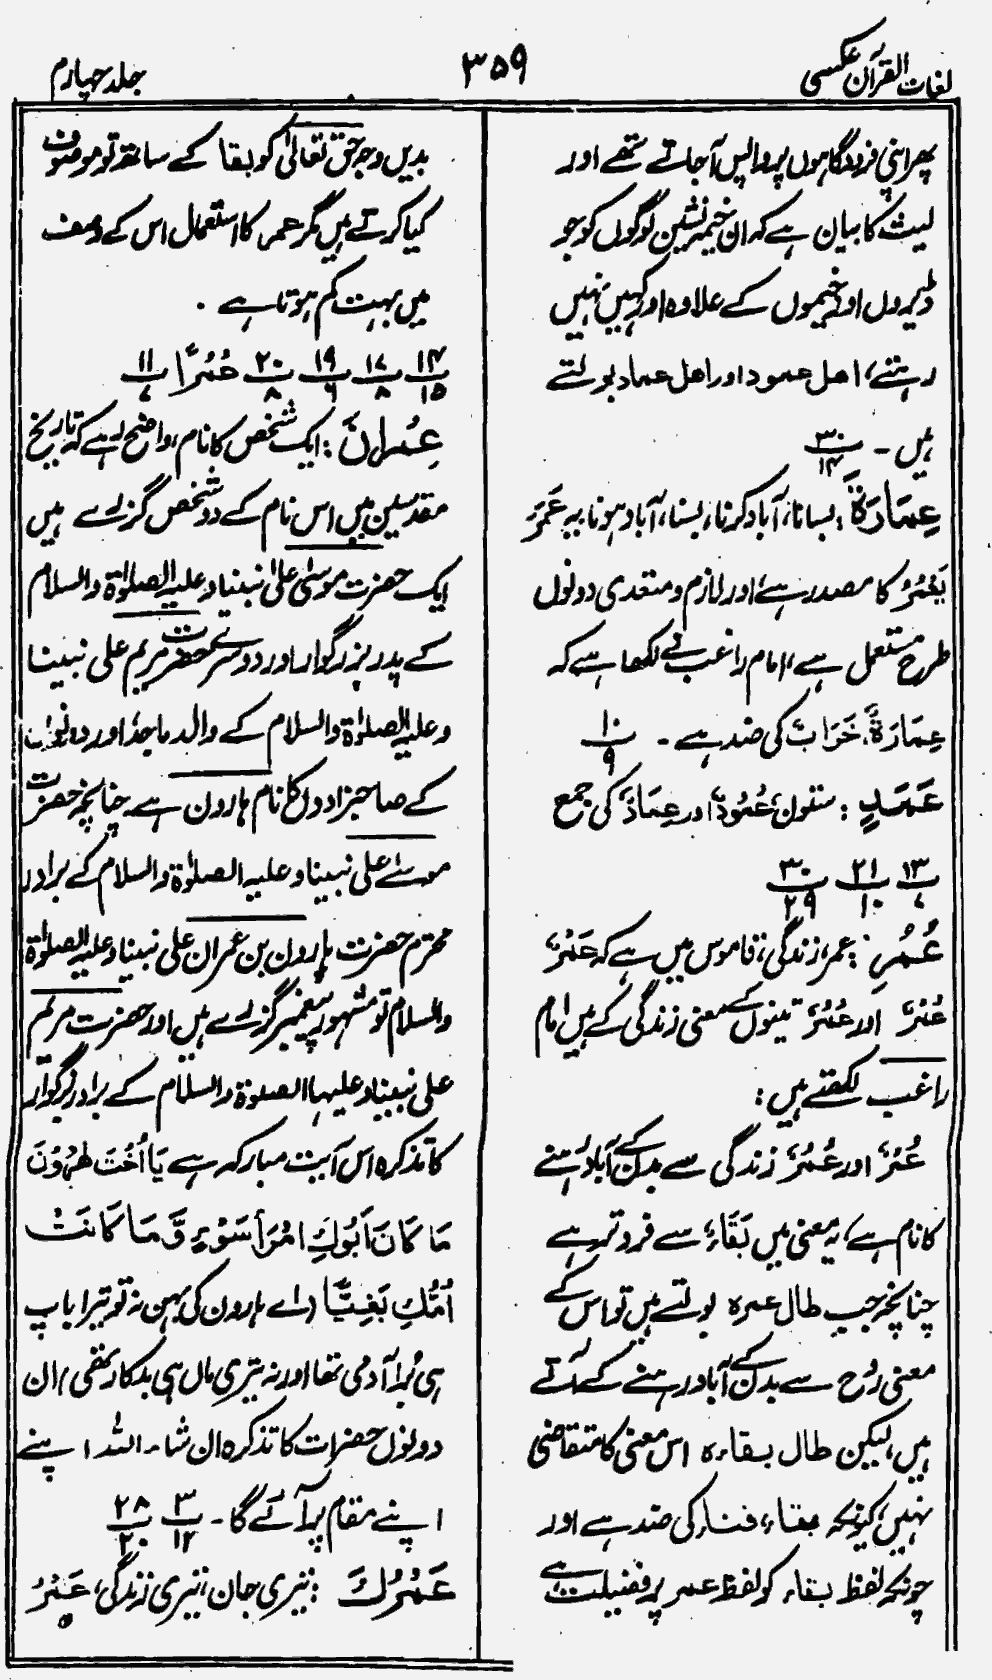 لغات القرآن عکسی
۳۵۹
جلد چہارم
پھر اپنی فرودگاہوں پر واپس آجاتے تھے اور
لیث کا بیان ہے کہ ان خیمہ نشین لوگوں کو جو
ڈیروں اور خیموں کے علاوہ اور کہیں نہیں
رہتے، اھل عمود اور اھل عماد بولتے
ہیں ۔ ۳۰/۱۴
عِمَارَةٌ : بسانا، آباد کرنا، بسنا، آباد ہونا یہ عَمَرَ
یَعْمُرُ کا مصدر ہے، اور لازم و متعدی دونوں
طرح مستعمل ہے، امام راغب نے لکھا ہے کہ
عِمَارَةٌ، خَرَابٌ کی ضد ہے ۔ ۱۰/۹
عَمَدٍ : ستون، عُمُوْدٌ اور عِمَادٌ کی جمع
۱۳/۷ ۲۱/۱۰ ۳۰/۲۹
عُمُرِ : عمر، زندگی، قاموس میں ہے کہ عَمْرٌ
عُمْرٌ اور عُمُرٌ تینوں کے معنی زندگی کے ہیں امام
راغب لکھتے ہیں :
عُمُرٌ اور عُمْرٌ زندگی سے بدن کے آباد رہنے
کا نام ہے، یہ معنی میں بَقَاءٌ سے فروتر ہے
چنانچہ جب طال عمرہ بولتے ہیں تو اس کے
معنی رُوح سے بدن کے آباد رہنے کے آتے
ہیں، لیکن طال بقاءہ اس معنی کا متقاضی
نہیں، کیونکہ بقاء، فناء کی ضد ہے اور
چونکہ لفظ بقاء کو لفظ عمر پر فضیلت ہے
بدیں وجہ حق تعالیٰ کو بقا کے ساتھ تو موصوف
کیا کرتے ہیں مگر عمر کا استعمال اس کے وصف
میں بہت کم ہوتا ہے ۔
۱۴/۱۵ ۱۷/۸ ۱۹/۶ ۲۰/۸ عُمُرًا ۱۱/۷
عِمْرَانَ : ایک شخص کا نام، واضح رہے کہ تاریخ
مقدسین میں اس نام کے دو شخص گزرے ہیں
ایک حضرت موسیٰ علیٰ نبینا و علیہ الصلوٰة والسلام
کے پدر بزرگوار اور دوسرے حضرت مریم علی نبینا
و علیہ الصلوٰة والسلام کے والد ماجد، اور دونوں
کے صاحبزادوں کا نام ہارون ہے چنانچہ حضرت
موسےٰ علی نبینا و علیہ الصلوٰة والسلام کے برادر
محترم حضرت ہارون بن عمران علی نبینا و علیہ الصلوٰة
والسلام تو مشہور پیغمبر گزرے ہیں اور حضرت مریم
علی نبینا و علیہا الصلوٰة والسلام کے برادر بزرگوار
کا تذکرہ اس آیت مبارکہ ہے یَا اُخْتَ هٰرُوْنَ
مَا كَانَ اَبُوْكِ امْرَاَ سَوْءٍ وَّمَا كَانَتْ
اُمُّكِ بَغِيًّا (اے ہارون کی بہن نہ تو تیرا باپ
ہی بُرا آدمی تھا اور نہ تیری ماں ہی بدکار تھی) ان
دونوں حضرات کا تذکرہ ان شاء اللہ اپنے
اپنے مقام پر آئے گا ۔ ۳/۱۲ ۲۸/۲۰
عَمْرُكَ : تیری جان، تیری زندگی، عَمْرُ